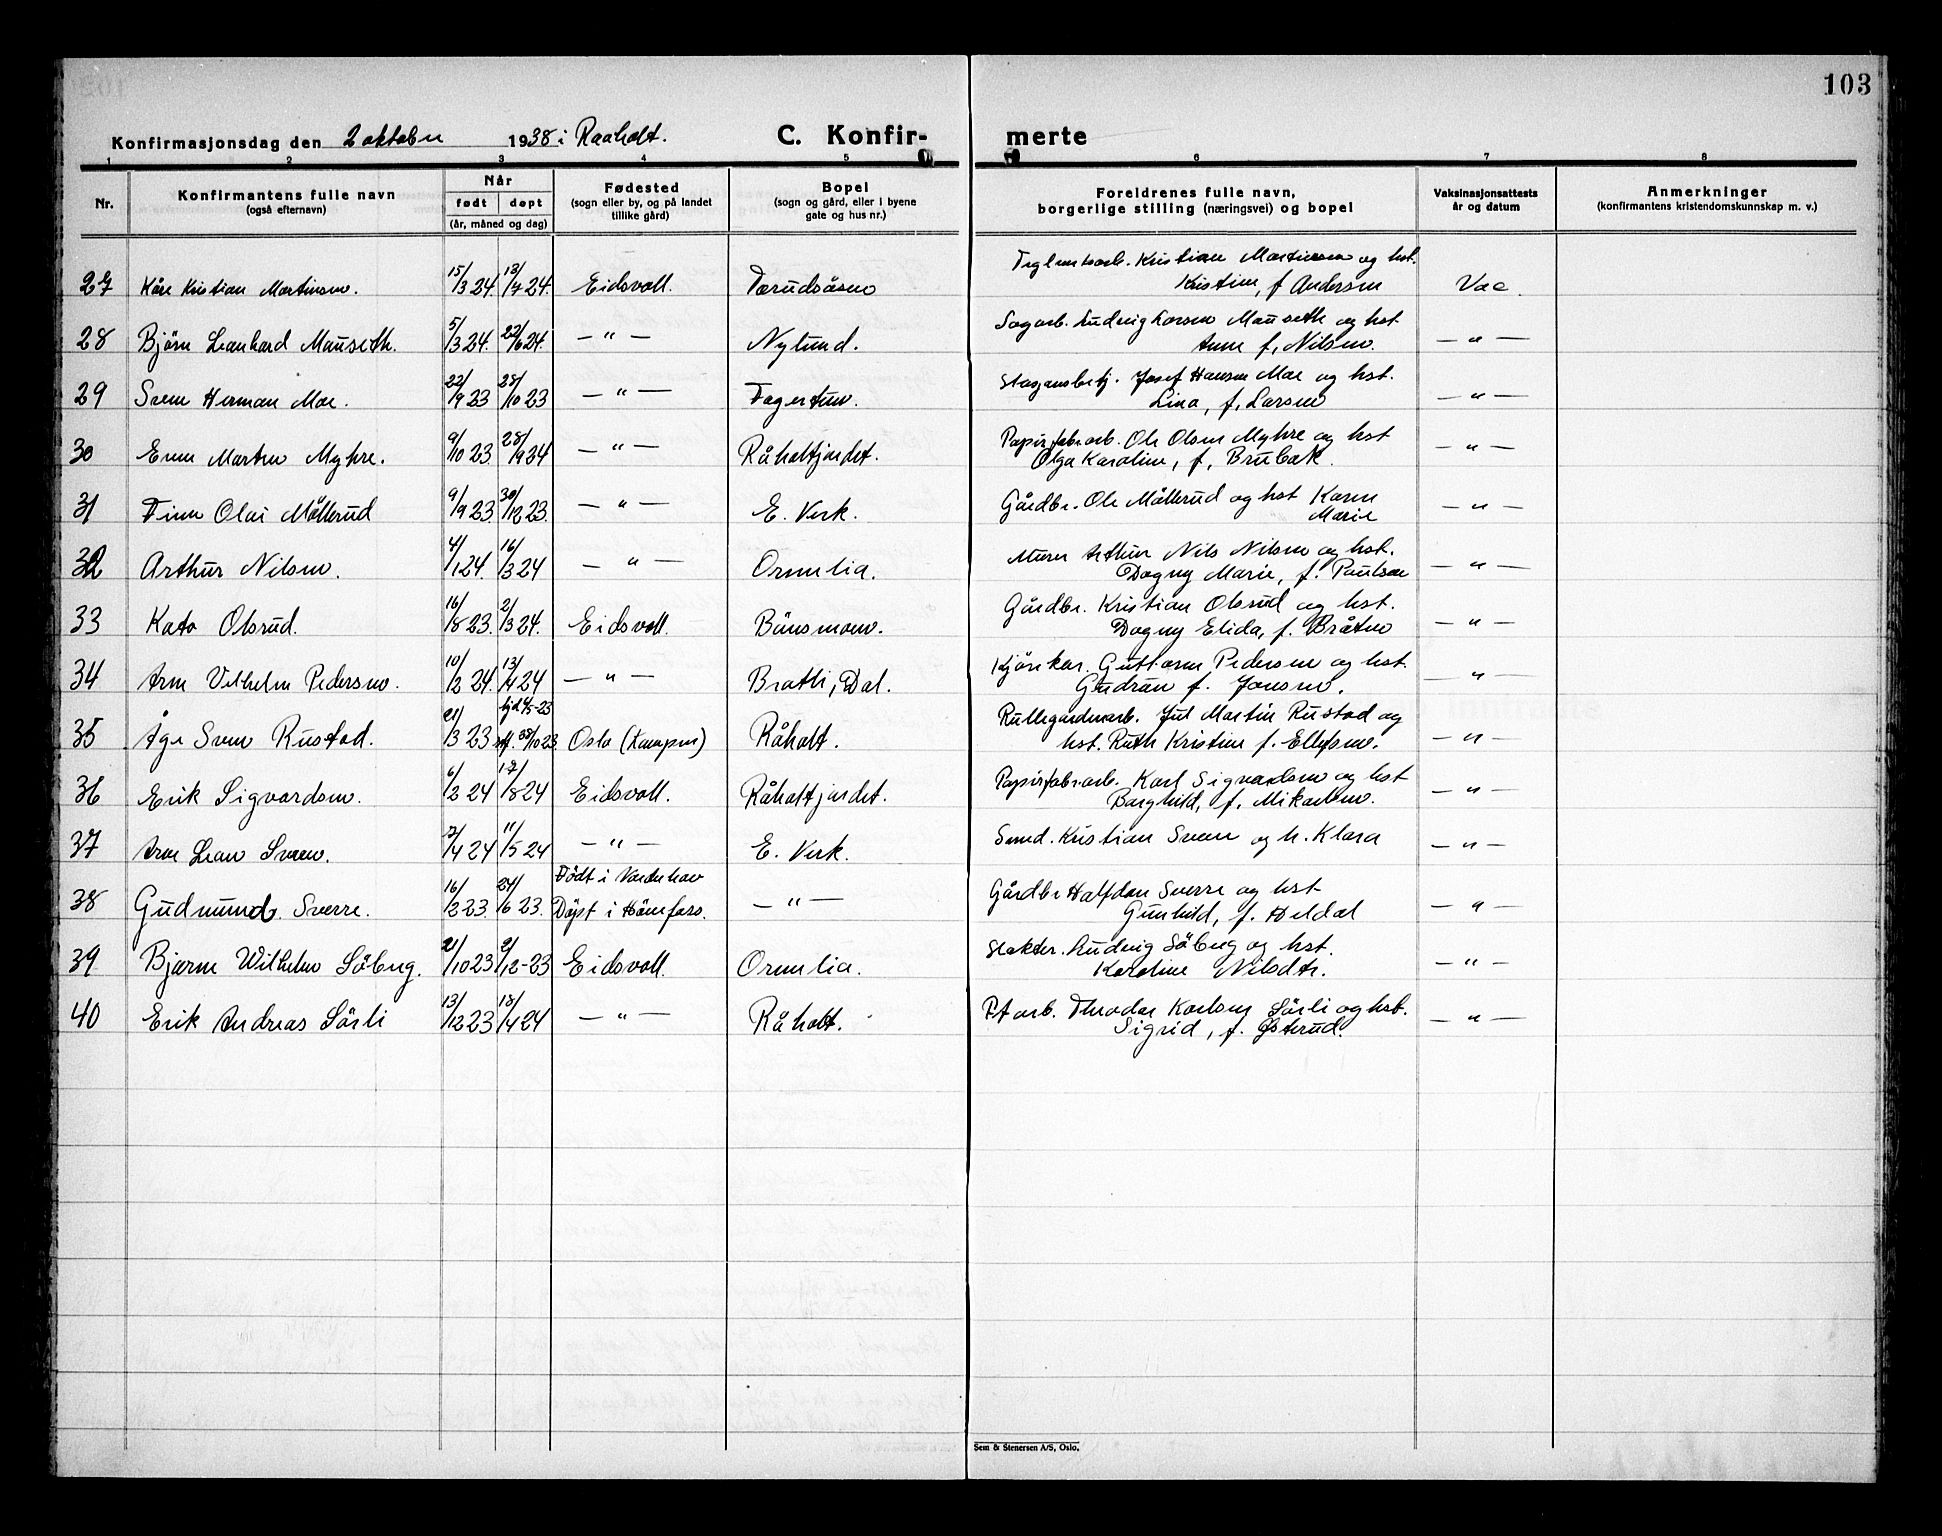 103
Konfirmasjonsdag den 2 oktober 1938 i Raaholt.
C. Konfir- merte
1 2 3 4 5 6 7 8
Nr.
Konfirmantens fulle navn
(også efternavn)
Når
født døpt
(år, måned og dag)
Fødested
(sogn eller by, og på landet
tillike gård)
Bopel
(sogn og gård, eller i byene
gate og hus nr.)
Foreldrenes fulle navn,
borgerlige stilling (næringsvei) og bopel
Vaksinasjonsattests
år og datum
Anmerkninger
(konfirmantens kristendomskunnskap m. v.)
Kristian Martinsen og hst.
27 Kåre Kristian Martinsen. 15/3 24. 13/7 24. Eidsvoll. Kristine, f Andersen Vac.
Sagarb. Ludvig Larsen Mauseth og hst.
28 Bjørn Leonhard Mauseth. 5/3 24. 22/6 24. — " — Nylund. Anne f. Nilsen. — " —
Josef Hansen Moe og hst.
29 Svein Herman Moe. 22/9 23 28/10 23 — " — Fagertun. Lina, f. Larsen — " —
Papirfabr.arb. Ole Olsen Myhre og hst
30 Even Morten Myhre. 9/10 23. 28/9 24 — " — Råholtjordet. Olga Karoline, f. Brubak. — " —
31 Finn Olai Møllerud 9/9 23. 30/12 23. — " — E. Verk. Gårdbr. Ole Møllerud og hst Karen
Marie — " —
Murer Arthur Nils Nilsen og hst.
32 Arthur Nilsen. 4/1 24. 16/3 24 — " — Ormlia. Dagny Marie, f. Paulsen — " —
Gårdbr. Kristian Olsrud og hst.
33 Kato Olsrud. 16/8 23. 2/3 24. Eidsvoll. Bønsmoen. Dagny Elida, f. Bråten — " —
Kjørekar. Guttorm Pedersen og hst.
34 Arne Vilhelm Pedersen. 10/2 24. 13/4 24 — " — Bratli, Dal. Gudrun f. Jonsen. — " —
Jul Martin Rustad og
35 Åge Svein Rustad. 21/3 23 Oslo (Kampen) Råholt. hst. Ruth Kristine f. Ellefsen. — " —
Papirfabr.arb. Karl Sigvardsen og hst
36 Erik Sigvardsen. 6/2 24 17/8 24 Eidsvoll. Råholtjordet. Borghild, f. Mikaelsen. — " —
37 Arne Leon Sveen. 7/4 24 11/5 24 — " — E. Verk. Smed. Kristian Sveen og h. Klara — " —
Født i Nordenhov
Gårdbr Halfdan Sverre og hst
38 Gudmund Sverre. 16/2 23. 24/6 23. Døpt i — " — Gunhild, f. Heldal — " —
Slakter. Ludvig Söberg og hst.
39 Bjarne Wilhelm Söberg. 21/10 23 2/12-23 Eidsvoll. Ormlia. Karoline Nilsdtr. — " —
Pf arb. Theodor Karlsen Sörli og hst.
40 Erik Andreas Sörli 13/12 23 18/4 24 — " — Råholt. Sigrid, f. Østerud. — " —
Sem & Stenersen A/S, Oslo.